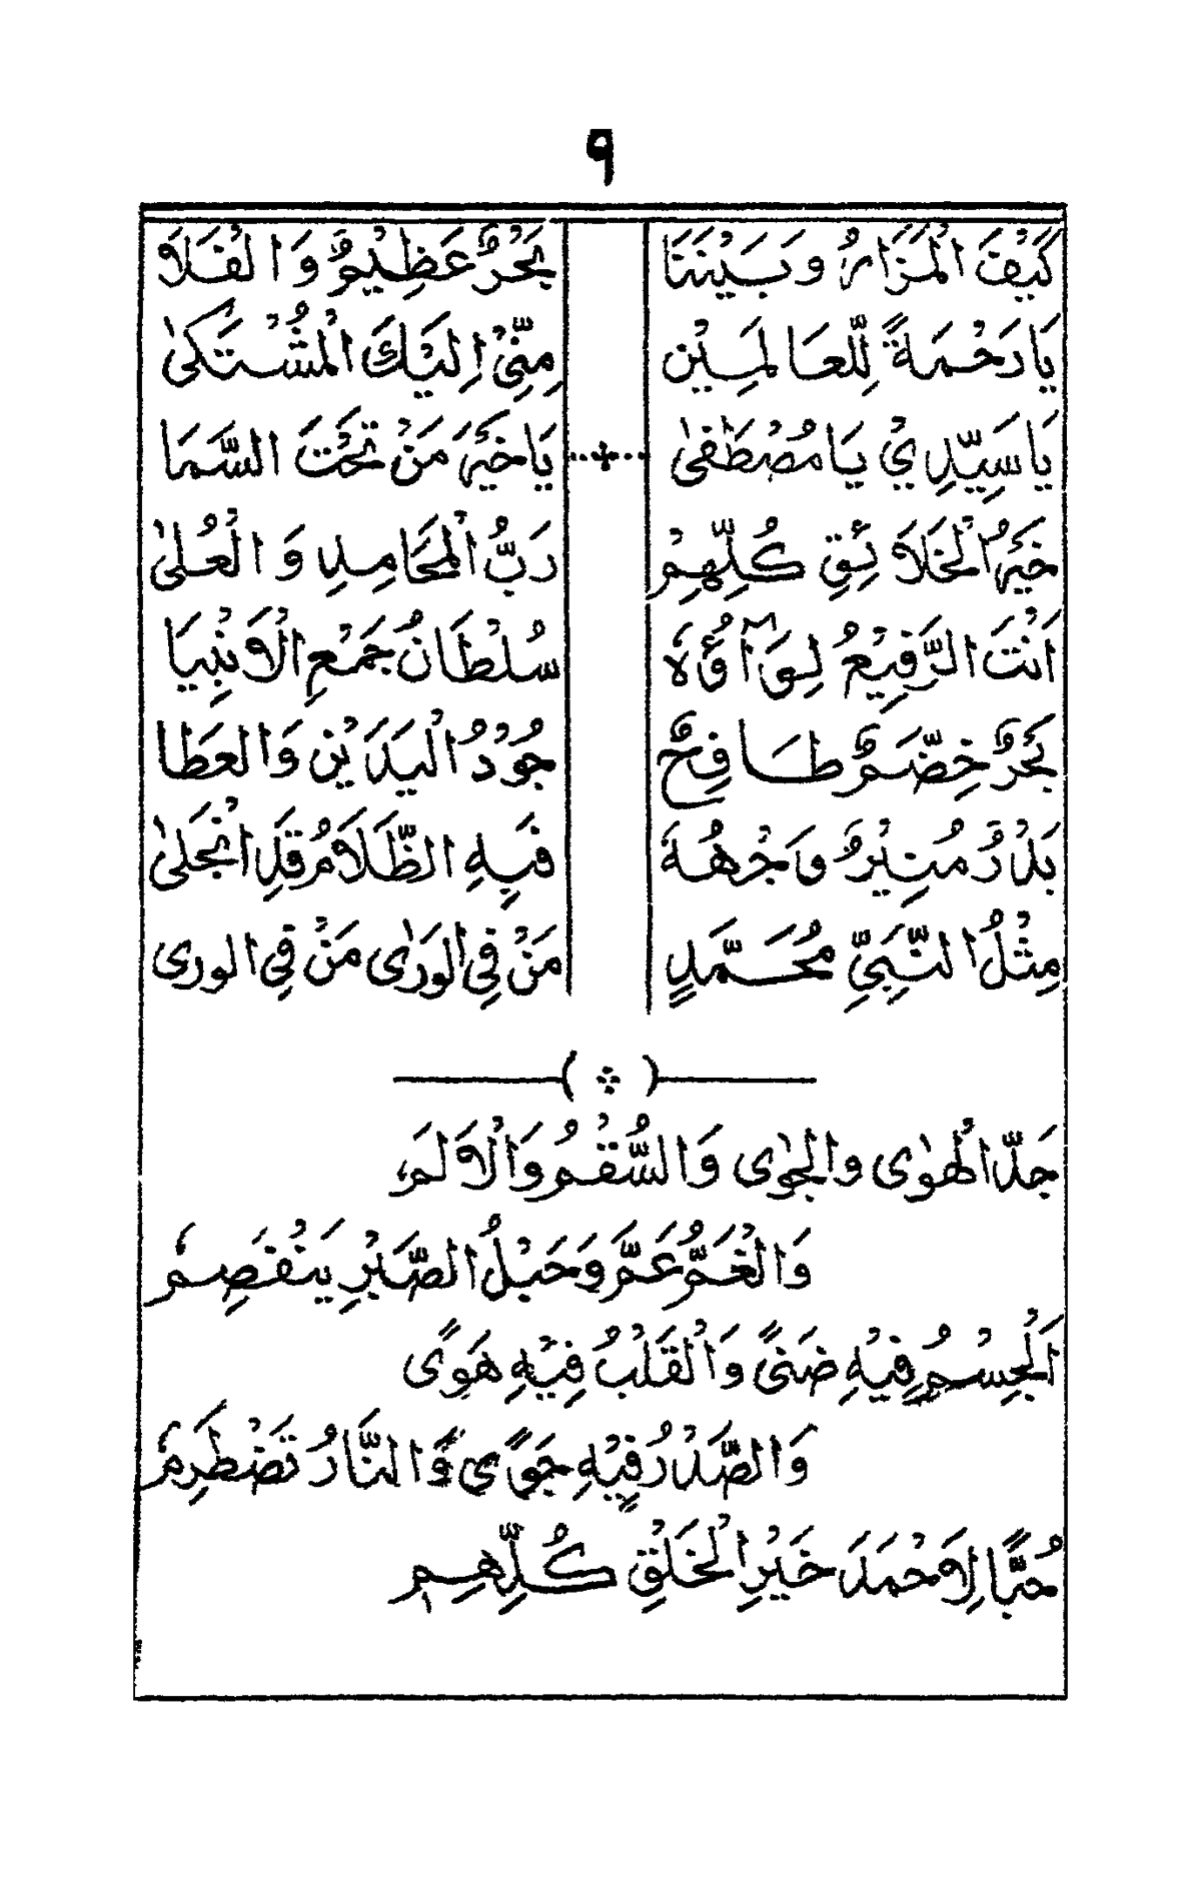 ٩
كَيْفَ الْمَزَارُ وَبَيْنَنَا بَحْرٌ عَظِيْمٌ وَالْفَلَا
يَا رَحْمَةً لِّلْعَالَمِيْنَ مِنِّيْ اِلَيْكَ الْمُشْتَكىٰ
يَا سَيِّدِيْ يَا مُصْطَفىٰ يَا خَيْرَ مَنْ تَحْتَ السَّمَا
خَيْرُ الْخَلَائِقِ كُلِّهِمْ رَبُّ الْمَحَامِدِ وَالْعُلىٰ
اَنْتَ الرَّفِيْعُ لِوَآؤُهٗ سُلْطَانُ جَمْعِ الْاَنْبِيَا
بَحْرٌ خِضَّمٌ طَافِحٌ جُوْدُ الْيَدَيْنِ وَالْعَطَا
بَدْرٌ مُنِيْرٌ وَجْهُهٗ فِيْهِ الظَّلَامُ قَدِ انْجَلىٰ
مِثْلُ النَّبِيِّ مُحَمَّدٍ مَنْ فِي الْوَرٰى مَنْ فِي الورى
جَدَّ الْهَوٰى والْجَوٰى وَالسُّقْمُ وَالْاَلَمُ
وَالْغَمُّ عَمَّ وَحَبْلُ الصَّبْرِ يَنْفَصِمُ
اَلْجِسْمُ فِيْهِ ضَنىً وَالْقَلْبُ فِيْهِ هَوًى
وَالصَّدْرُ فِيْهِ جَوًى وَالنَّارُ تَضْطَرِمُ
حُبًّا لِاَحْمَدَ خَيْرِ الْخَلْقِ كُلِّهِمِ